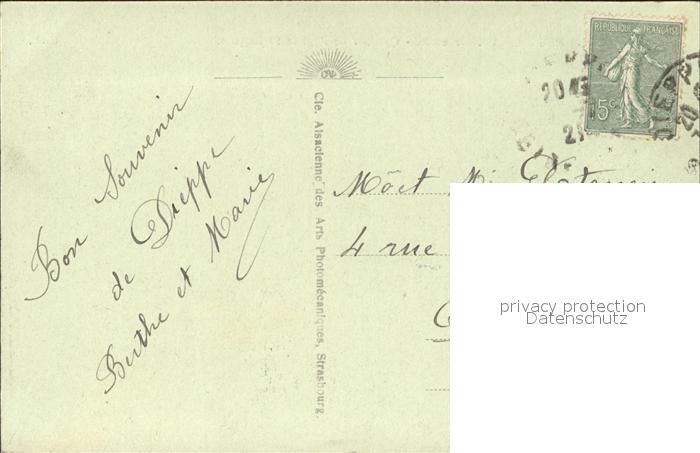 Bon Souvenir
de Dieppe
Berthe et Marie
Cie. Alsacienne des Arts Photomécaniques, Strasbourg.
REPUBLIQUE FRANÇAISE
15c
DIEPP
20
4 rue
privacy protection
Datenschutz